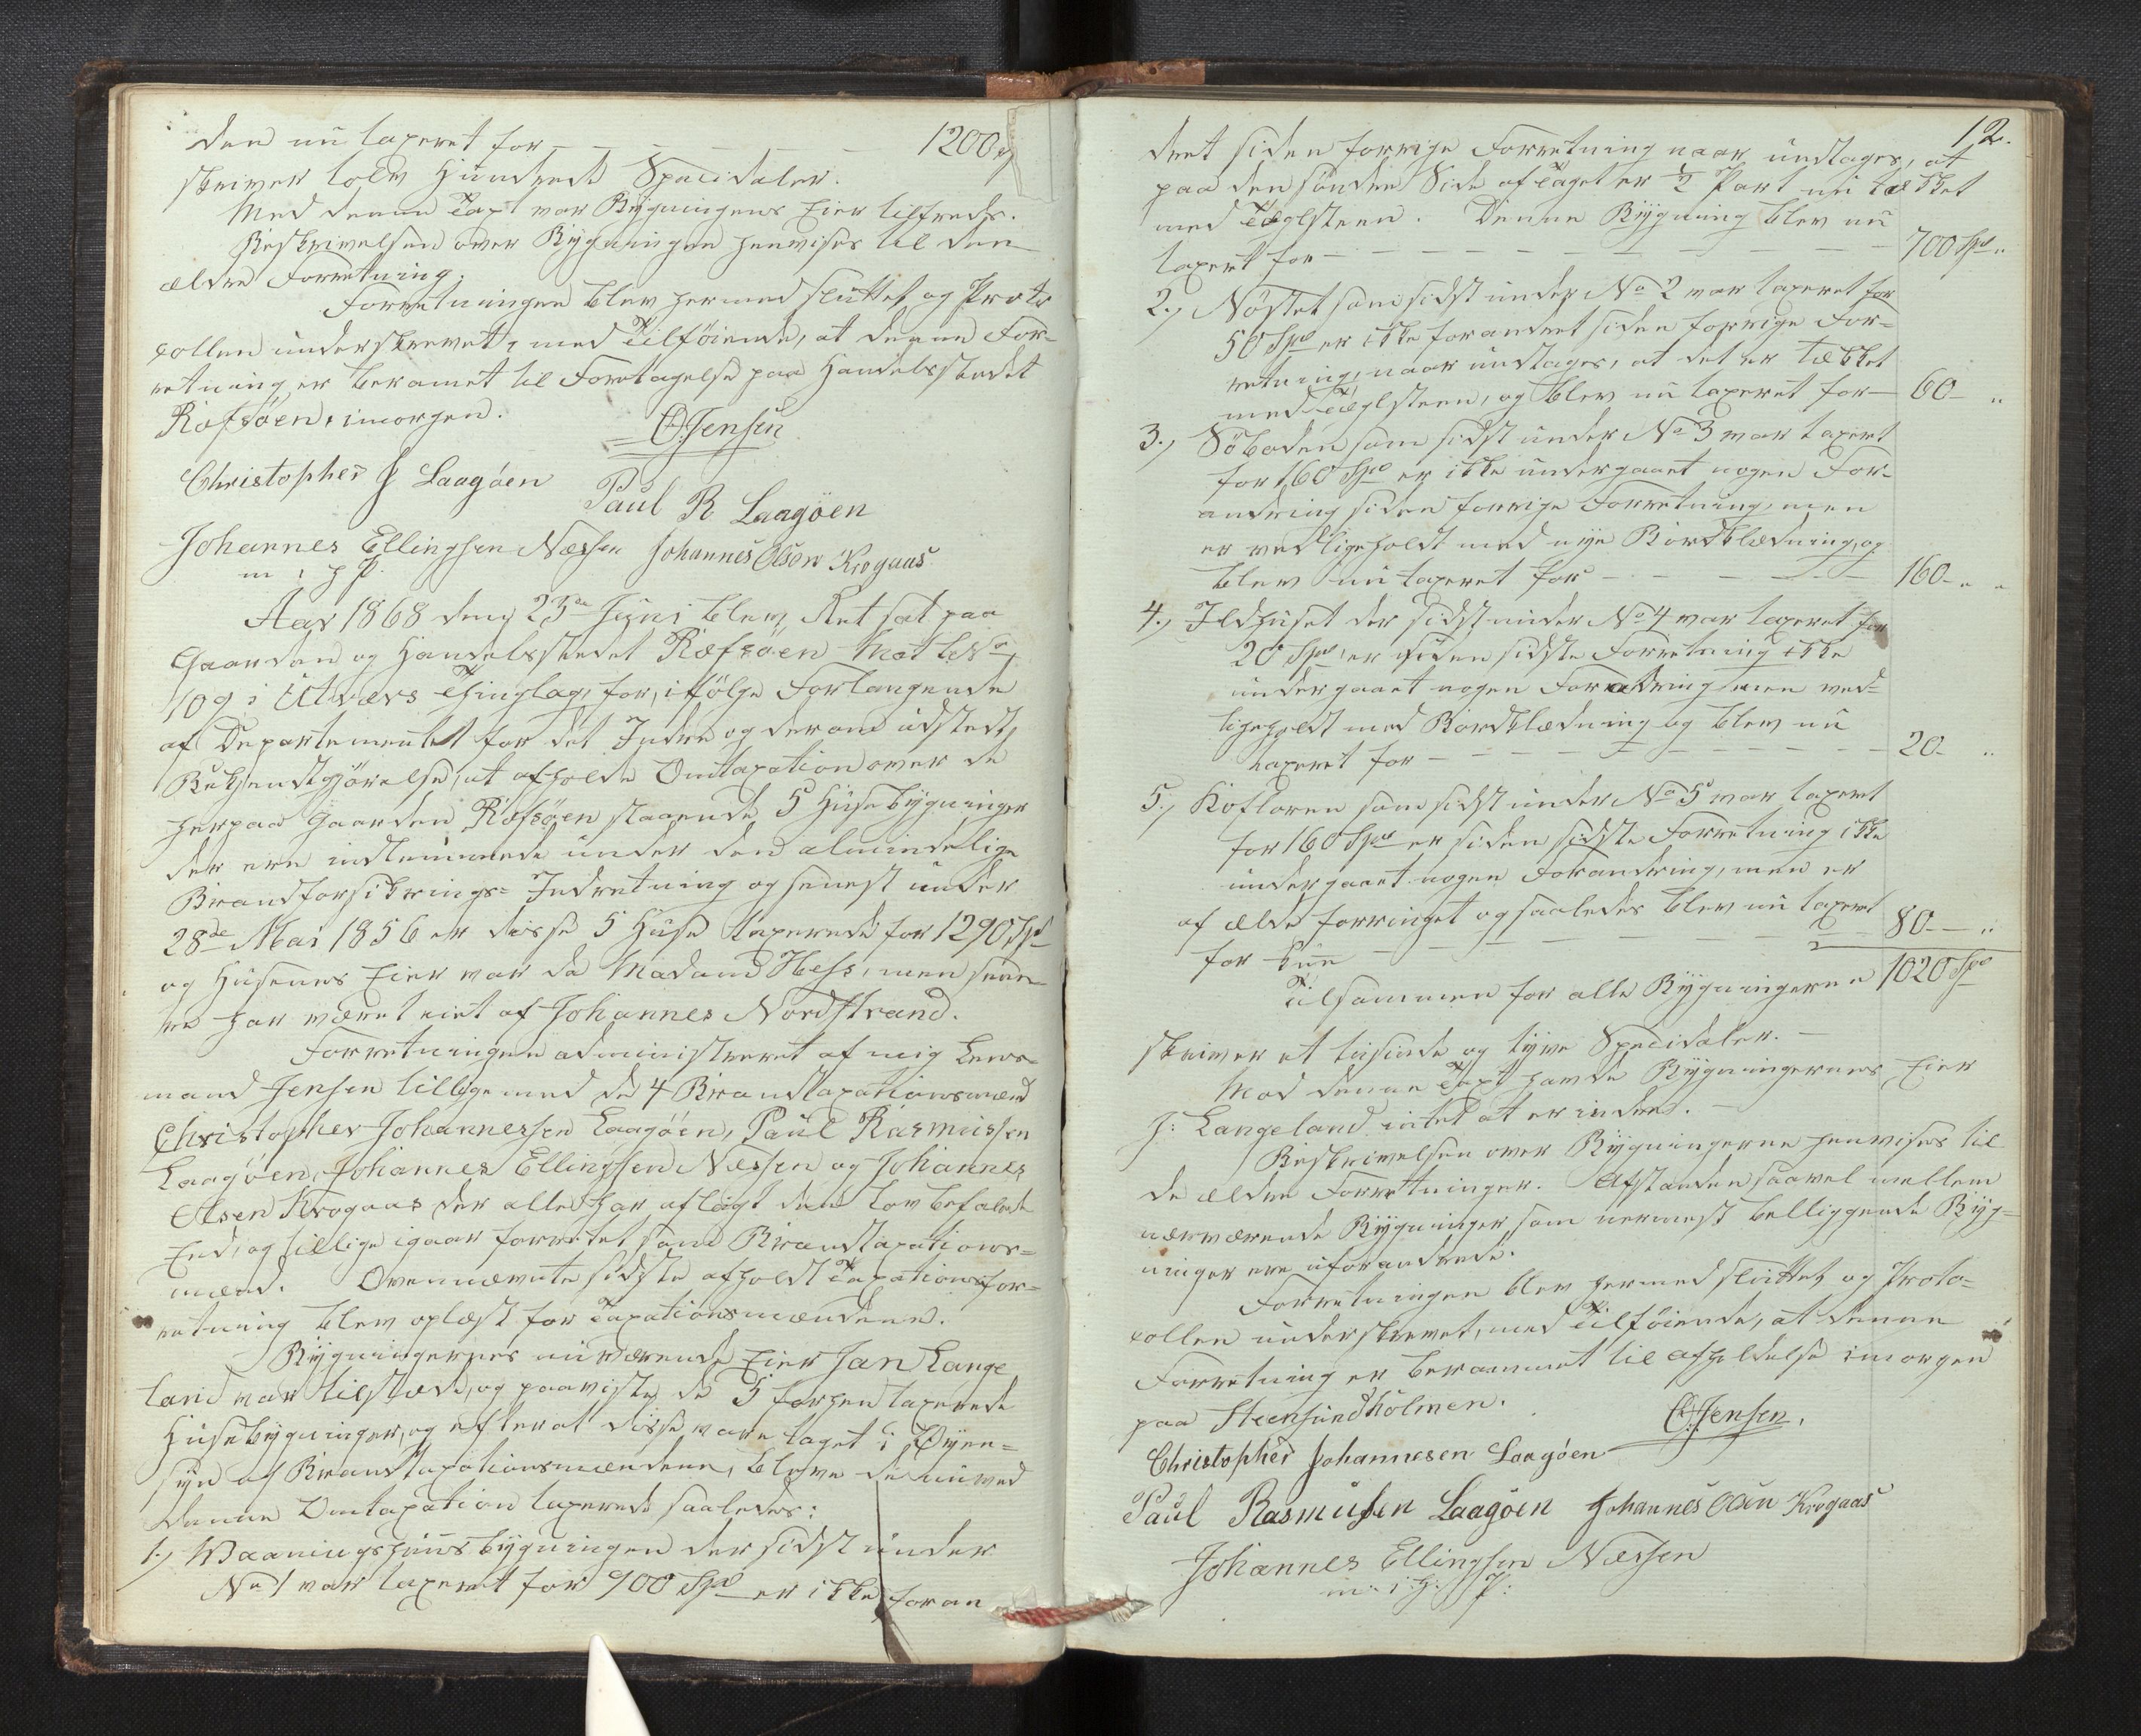 den nu taxeret for — — — — — 1200
skriver tolv Hundrede Speciedaler.
Med denne Taxt var Bygningens Eier tilfreds.
Beskrivelsen over Bygningen henvises til den
ældre Forretning.
Forretningen blev hermed sluttet og Proto
collen underskrevet, med Tilføiende, at denne For-
retning er berammet til Foretagelse paa Handelsstedet
Ræfsøen, imorgen.
O. Jensen
Christopher J Laagøen
Paul R Laagøen
Johannes Ellingsen Næssen Johannes Olson Krogaas
m i h P.
Aar 1868 den 23de Juni blev Ret sat paa
Gaarden og Handelsstedet Ræfsøen Mat No
109 i Utværs Thinglag, for, ifølge Forlangende
af Departementet for det Indre og derom udstedt
Bekjendtgjørelse, at afholde Omtaxation over de
herpaa Gaarden Ræfsøen staaende 5 Husebygninger
der ere indlemmede under den almindelige
Brandforsikrings-Indretning og senest under
28de Mai 1856 er disse 5 Huse taxerede for 1290 Spd
og Husenes Eier var da Madame Hess, men sene-
re har været eiet af Johannes Nordstrand.
Forretningen administreret af mig Lens-
mand Jensen tilligemed de 4 Brandtaxationsmænd
Christopher Johannessen Laagøen, Paul Rasmussen
Laagøen, Johannes Ellingsen Næssen og Johannes
Olsen Krogaas der alle har aflagt den lovbefalede
Eed, og tillige igaar forrettet som Brandtaxations-
mænd. Ovennævnte sidste afholdt Taxationsfor-
retning blev oplæst for Taxationsmændene.
Bygningernes nuværende Eier Jan Lange
land var tilstede, og paaviste de 5 forhen taxerede
Husebygninger, og efterat disse vare taget i Øyen-
syn af Brandtaxationsmændene, bleve de nu ved
denne Omtaxation taxerede saaledes:
1., Vaaningshuusbygningen der sidst under
No 1 var taxeret for 900 Spd er ikke foran
12.
dret siden forrige Forretning naar undtages, at
paa den søndre Side af Taget er 1/2 Part nu tækket
med Tæglsteen. Denne Bygning blev nu
taxert for — — — — — — — 700 Spd „
2., Nøstet som sidst under No 2 var taxeret for
50 Spd er ikke forandret siden forrige For-
retning, naar undtages, at det er tækket
med Tæglsteen, og blev nu taxeret for — 60 - „
3., Søboden som sidst under No 3 var taxert
for 160 Spd er ikke undergaaet nogen For-
andring siden forrige Forretning, men
er vedligeholdt med nye Bordklædning, og
blev nu taxeret for — — — — — 160 - „ „
4., Ildhuset der sidst under No 4 var taxeret for
20 Spd, er siden sidste Forretning ikke
undergaaet nogen Forandring men ved-
ligeholdt med Bordklædning og blev nu
taxeret for — — — — — — — — 20 - „
5., Kofloren som sidst under No 5 var taxert
for 160 Spd er siden sidste Forretning ikke
undergaaet nogen Forandring, men er
af ælde forringet og saaledes blev nu taxert
for kun — — — — — — — 80 — „
Tilsammen for alle Bygningerne 1020 Spd
skriver et tusinde og tyve Speciedaler. —
Mod denne Taxt havde Bygningernes Eier
J: Langeland intet at erindre. —
Beskrivelsen over Bygningerne henvises til
de ældre Forretninger. Afstanden saavel mellem
nærværende Bygninger som nermest belliggende Byg-
ninger ere uforandrede.
Forretningen blev hermed sluttet og Proto-
collen underskrevet, med Tilføiende, at denne
Forretning er berammet til afholdelse imorgen
paa Steensundholmen.
O. Jensen.
Christopher Johannesen Laagøen
Paul Rasmusen Laagøen Johannes Olsen Krogaas
Johannes Ellingsen Næssen
m: i: H: P: